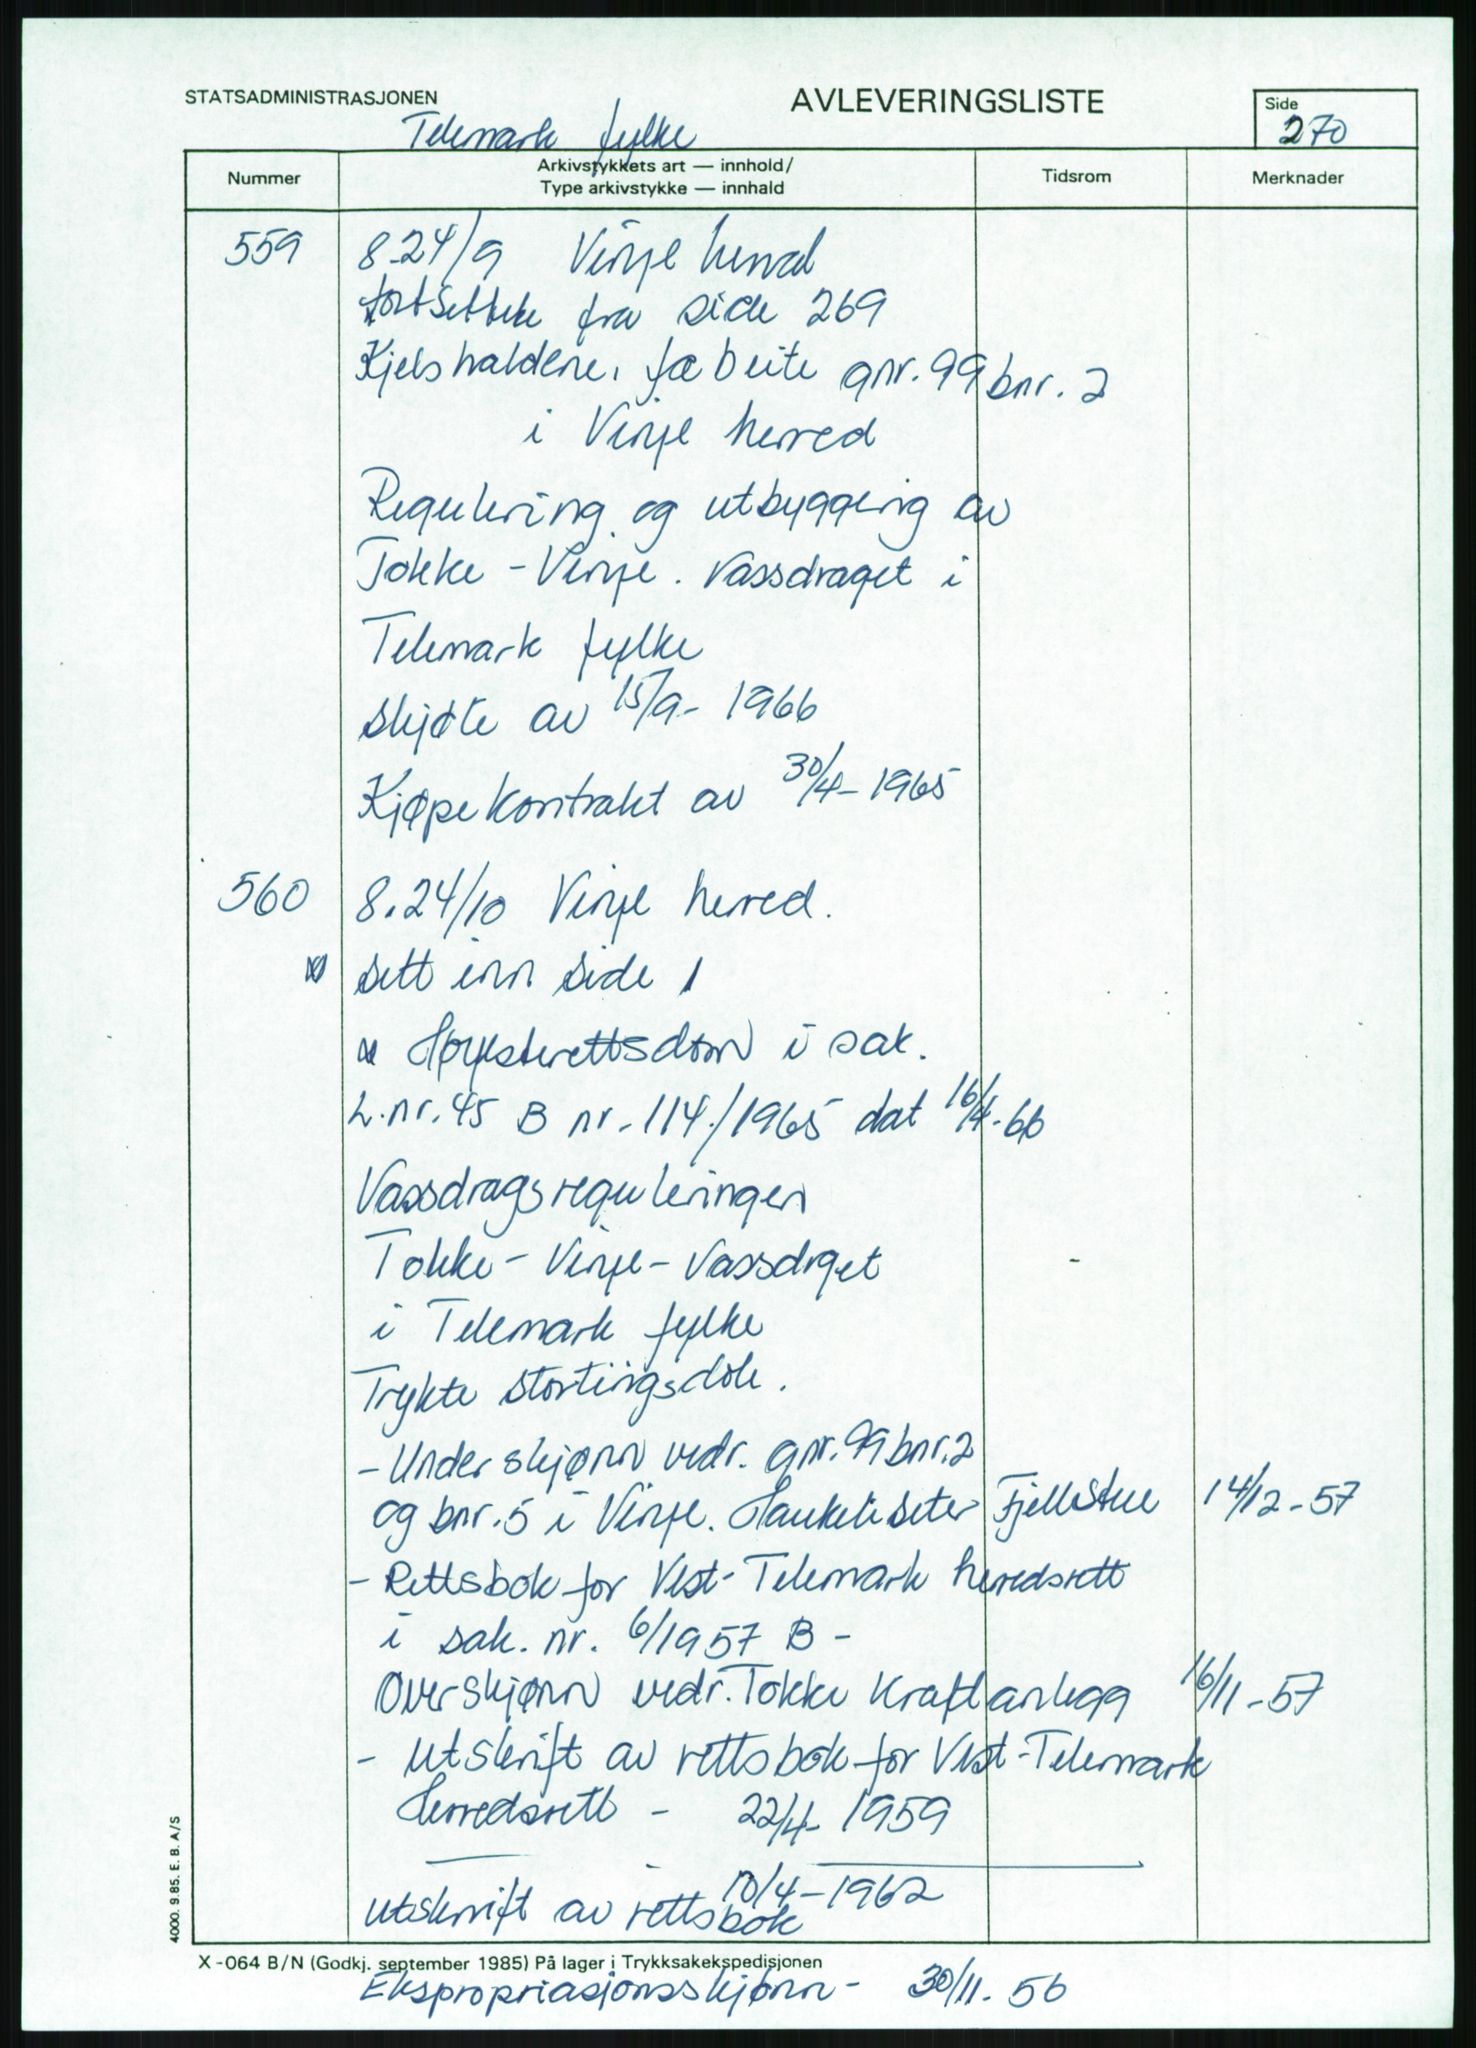 STATSADMINISTRASJONEN
AVLEVERINGSLISTE
Side
270
Telemark fylke
Nummer
Arkivstykkets art — innhold/
Type arkivstykke — innhald
Tidsrom
Merknader
559 8.24/9 Vinje herred
fortsettelse fra side 269
fæbeite gnr. 99 bnr. 2
i Vinje herred
Regulering og utbygging av
Tokke - Vinje. vassdraget i
Telemark fylke
Skjøte av 15/9 - 1966
Kjøpekontrakt av 30/4 - 1965
560 8.24/10 Vinje herred.
sett inn side 1
Høyesterettsdom i sak.
L.nr. 45 B nr. 114/1965 dat 16/4-66
Vassdragsreguleringen
Tokke - Vinje - Vassdrget
i Telemark fylke
Trykte stortingsdok.
- Underskjønn vedr. gnr. 99 bnr. 2
og bnr. 5 i Vinje. Haukeliseter Fjellstue 14/12 - 57
- Rettsbok for Vest-Telemark herredsrett
i sak. nr. 6/1957 B -
Overskjønn vedr. Tokke Kraftanlegg 16/11 - 57
- Utskrift av rettsbok for Vest-Telemark
Herredsrett - 22/4 - 1959
10/4 - 1962
utskrift av rettsbok
X-064 B/N (Godkj. september 1985) På lager i Trykksakekspedisjonen
Ekspropriasjonsskjønn - 30/11 - 56
4000. 9.85. E. B. A/S